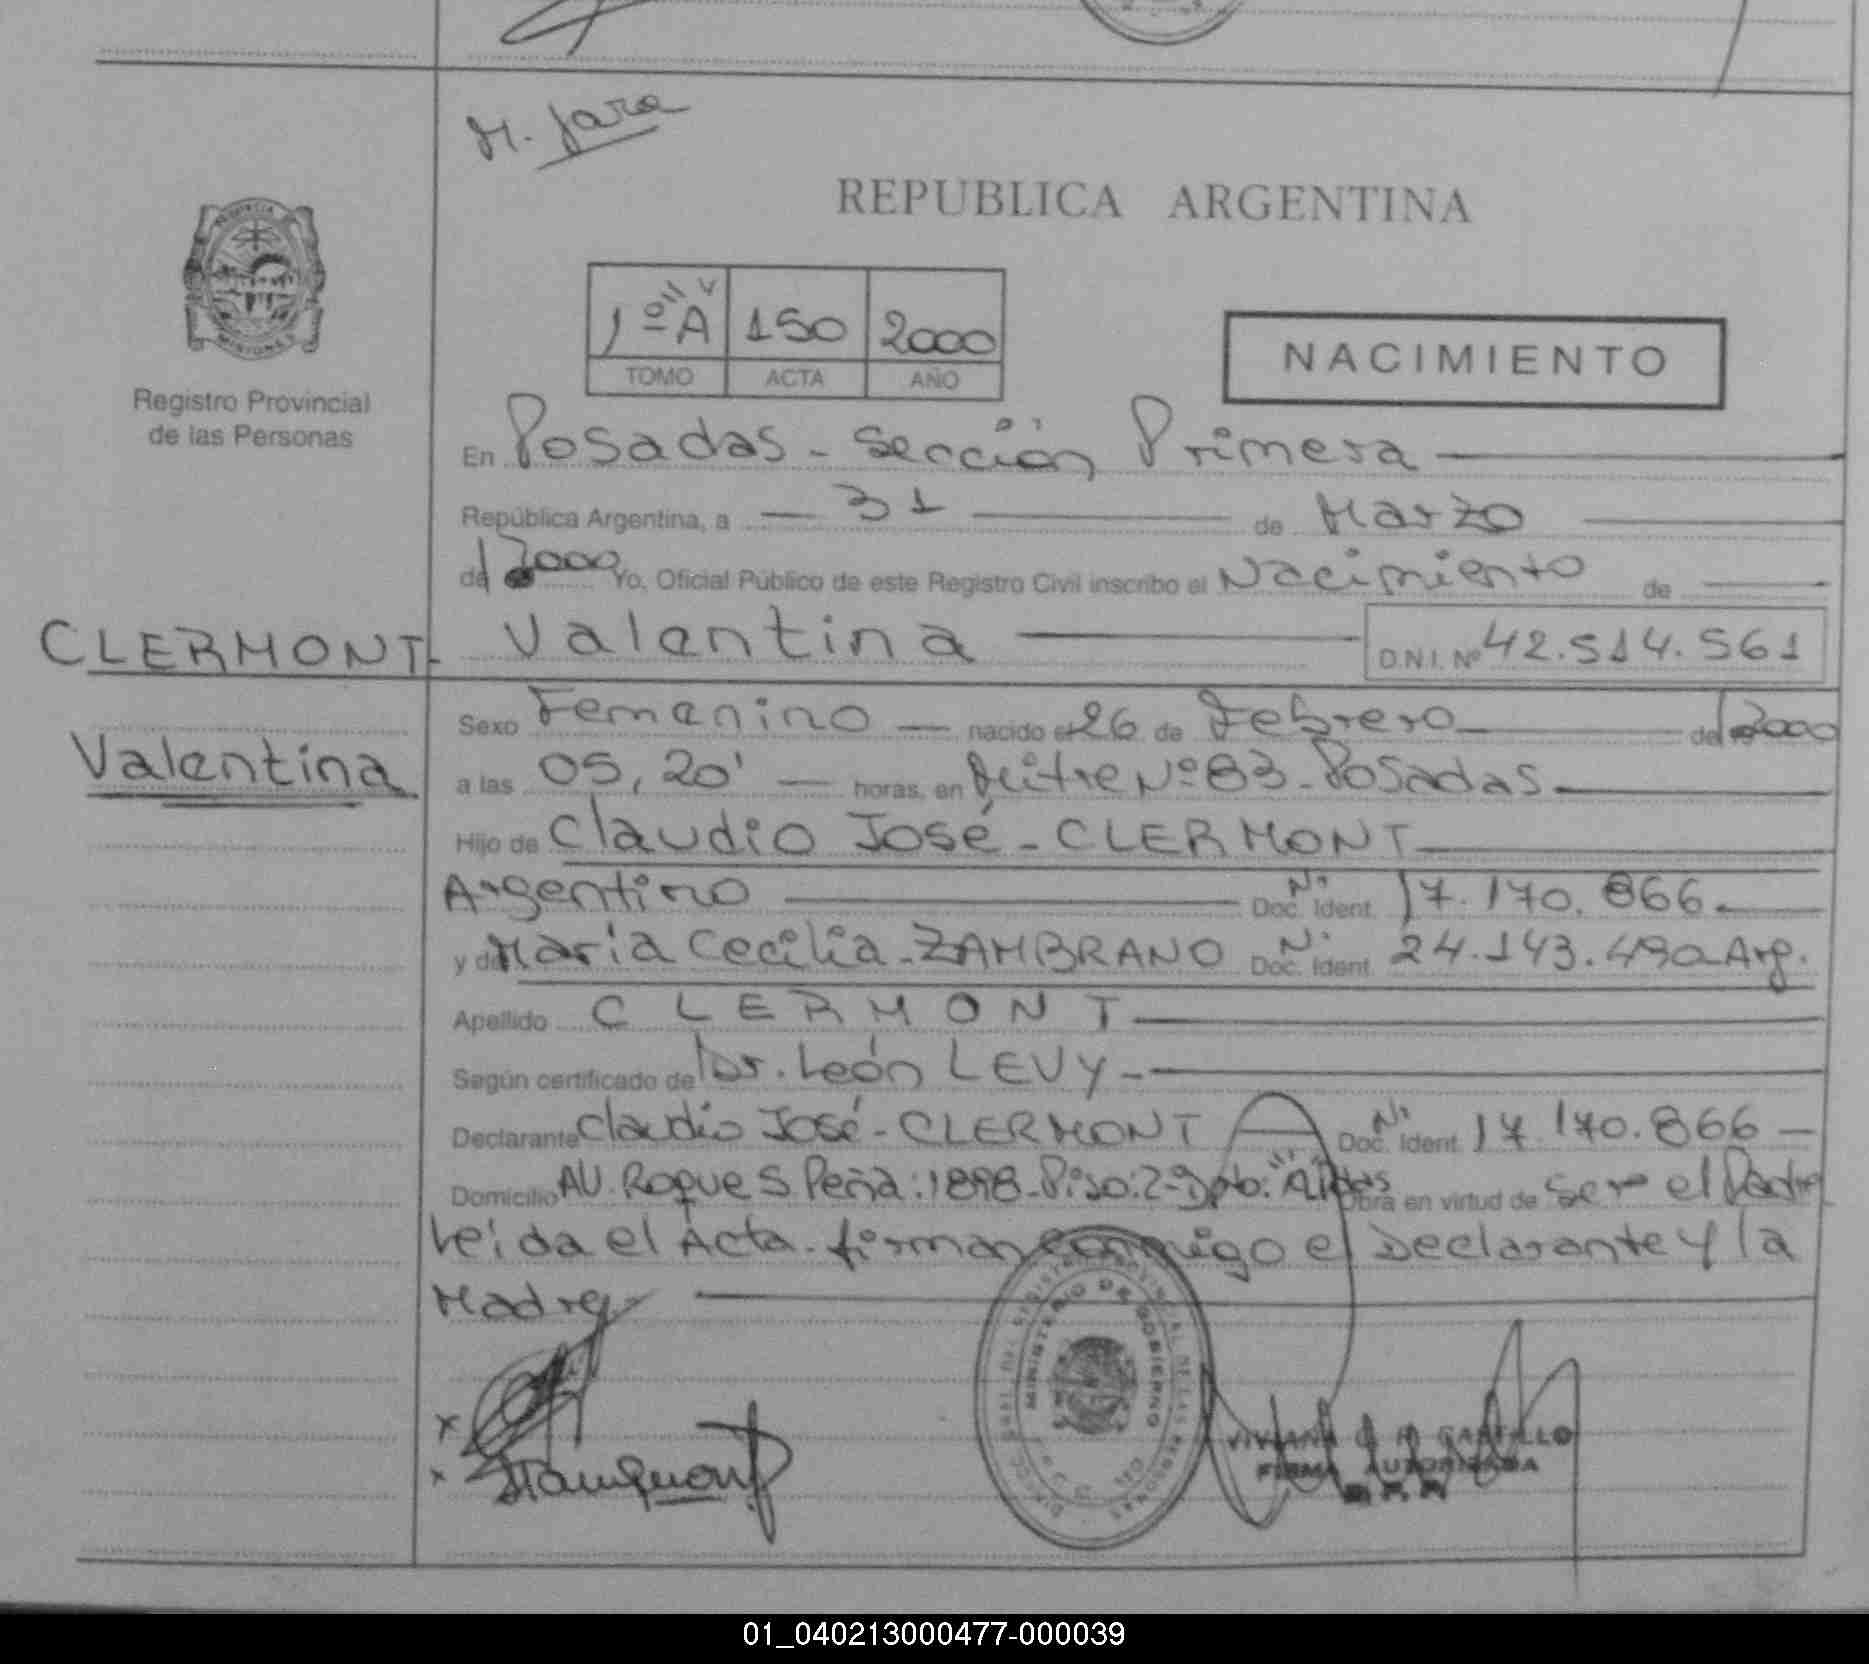 M. Jara
REPUBLICA ARGENTINA
1º "A" 150 2000
TOMO ACTA AÑO
NACIMIENTO
Registro Provincial
de las Personas
En Posadas - Sección Primera
República Argentina, a 31 de Marzo
del 2000 Yo, Oficial Público de este Registro Civil inscribo el Nacimiento de
CLERMONT - Valentina D.N.I. Nº 42.514.561
Valentina
Sexo Femenino nacido el 26 de Febrero del 2000
a las 05,20' horas, en Mitre Nº 83 - Posadas
Hijo de Claudio José - CLERMONT
Argentino Doc. Ident. Nº 17.170.866
y de María Cecilia - ZAMBRANO Doc. Ident. Nº 24.143.490 Arg.
Apellido CLERMONT
Según certificado de Dr. León LEVY -
Declarante Claudio José - CLERMONT Doc. Ident. Nº 17.170.866
Domicilio AV. Roque S. Peña: 1898 - Piso: 2º Dpto: "A" Obra en virtud de ser el Padre
Leída el Acta - firman conmigo el Declarante y la
Madre
MINISTERIO DE GOBIERNO
VIVIANA CASTILLO
FIRMA AUTORIZADA
01_040213000477-000039